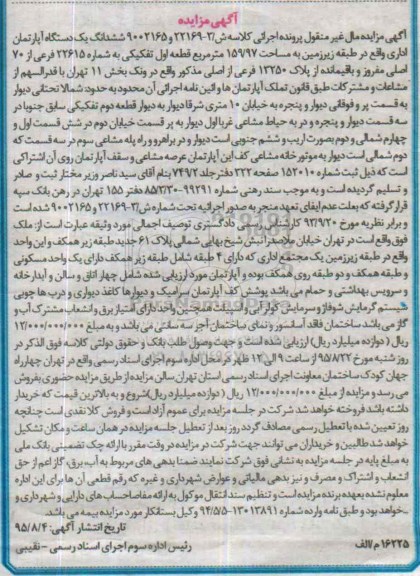 آگهی مزایده
آگهی مزایده مال غیر منقول پرونده اجرائی کلاسه ش/۲۲۱۶۹-۳ و ۹۰۰۲۱۶۵ ششدانگ یک دستگاه آپارتمان
اداری واقع در طبقه زیرزمین به مساحت ۱۵۹/۹۷ مترمربع قطعه اول تفکیکی به شماره ۲۲۶۱۵ فرعی از ۷۰
اصلی مفروز و باقیمانده از پلاک ۱۳۳۵۰ فرعی از اصلی مذکور واقع در ونک بخش ۱۱ تهران با قدرالسهم از
مشاعات و مشترکات طبق قانون تملک آپارتمان ها و آئین نامه اجرائی آن محدوده به حدود شمالا تحتانی دیوار
به قسمت پر و فوقانی دیوار و پنجره به خیابان ۱۰ متری شرقا دیوار به دیوار قطعه دوم تفکیکی سابق جنوبا در
سه قسمت دیوار و پنجره و در به حیاط مشاعی غربا اول دیوار به پر قسمت خیابان دوم در شش قسمت اول و
چهارم شمالی و دوم بصورت اریب و ششم جنوبی است دیوار و در به راهرو و راه پله مشاعی سوم در سه قسمت که
دوم شمالی است دیوار به موتورخانه مشاعی کف این آپارتمان عرصه مشاعی و سقف آپارتمان روی آن اشتراکی
است که ذیل ثبت شماره ۱۵۲۰۱۰ صفحه ۲۲۲ دفتر جلد ۷۴۹۲ بنام آقای سید ناصر وزیر مختار ثبت و صادر
و تسلیم گردیده است و به موجب سند رهنی شماره ۹۹۲۹۱-۸۵/۳/۳۰ دفتر ۱۵۵ تهران در رهن بانک سپه
قرار گرفته که بعلت عدم ایفای تعهد منجر به صدور اجرائیه تحت شماره ش/۲۲۱۶۹-۳ و ۹۰۰۲۱۶۵ شده است
و برابر نظریه مورخ ۹۳/۹/۲۰ کارشناس رسمی دادگستری توصیف اجمالی مورد وثیقه عبارت است از: ملک
فوق واقع است در تهران خیابان ملاصدرا نبش شیخ بهایی شمالی پلاک ۶۱ جدید طبقه زیر همکف و این واحد
واقع در طبقه زیرزمین یک مجتمع اداری که دارای ۴ طبقه شامل طبقه زیر همکف دارای یک واحد مسکونی
و طبقه همکف و دو طبقه روی همکف بوده و آپارتمان مورد ارزیابی شده شامل چهار اتاق و سالن و آبدارخانه
و سرویس بهداشتی و حمام می باشد پوشش کف آپارتمان سرامیک و دیوارها کاغذ دیواری و درب ها چوبی
سیستم گرمایش شوفاژ و سرمایش کولر آبی و اسپیلت همچنین واحد دارای امتیاز برق و انشعاب مشترک آب و
گاز می باشد ساختمان فاقد آسانسور و نمای ساختمان آجر سه سانتی می باشد و به مبلغ ۱۲/۰۰۰/۰۰۰/۰۰۰
ریال (دوازده میلیارد ریال) ارزیابی شده است و جهت وصول طلب بانک و حقوق دولتی کلاسه فوق الذکر در
روز شنبه مورخ ۹۵/۸/۲۲ از ساعت ۹ الی ۱۲ ظهر در محل اداره سوم اجرای اسناد رسمی واقع در تهران چهارراه
جهان کودک ساختمان معاونت اجرای اسناد رسمی استان تهران سالن مزایده از طریق مزایده حضوری بفروش
می رسد و مزایده از مبلغ ۱۲/۰۰۰/۰۰۰/۰۰۰ ریال (دوازده میلیارد ریال) شروع و به بالاترین قیمت که خریدار
داشته باشد فروخته خواهد شد. شرکت در جلسه مزایده برای عموم آزاد است و فروش کلا نقدی است چنانچه
روز تعیین شده با تعطیل رسمی مصادف گردد روز بعد از تعطیل جلسه مزایده در همان ساعت و مکان تشکیل
خواهد شد طالبین و خریداران می توانند جهت شرکت در مزایده در وقت مقرر با ارائه چک تضمینی بانک ملی
به مبلغ پایه در جلسه مزایده به نشانی فوق شرکت نمایند ضمنا بدهی های مربوط به آب، برق، گاز اعم از حق
انشعاب و اشتراک و مصرف و نیز بدهی مالیاتی و عوارض شهرداری و غیره که رقم قطعی آن ها برای این اداره
معلوم نشده بعهده برنده مزایده است و تنظیم سند انتقال موکول به ارائه مفاصاحساب های دارایی و شهرداری و
...خواهد بود و طبق نامه وارده شماره ۱۳۰۱۳۸۹۱-۹۴/۵/۵ وکیل بستانکار مورد مزایده بیمه می باشد.
تاریخ انتشار آگهی: ۹۵/۸/۴
۱۶۲۲۵ م/الف رئیس اداره سوم اجرای اسناد رسمی - نقیبی